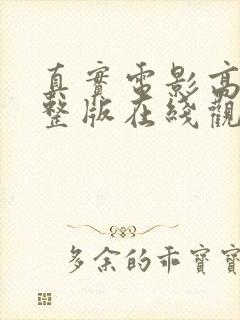 真實電影高
整版在綫觀
多余的乖寶寶